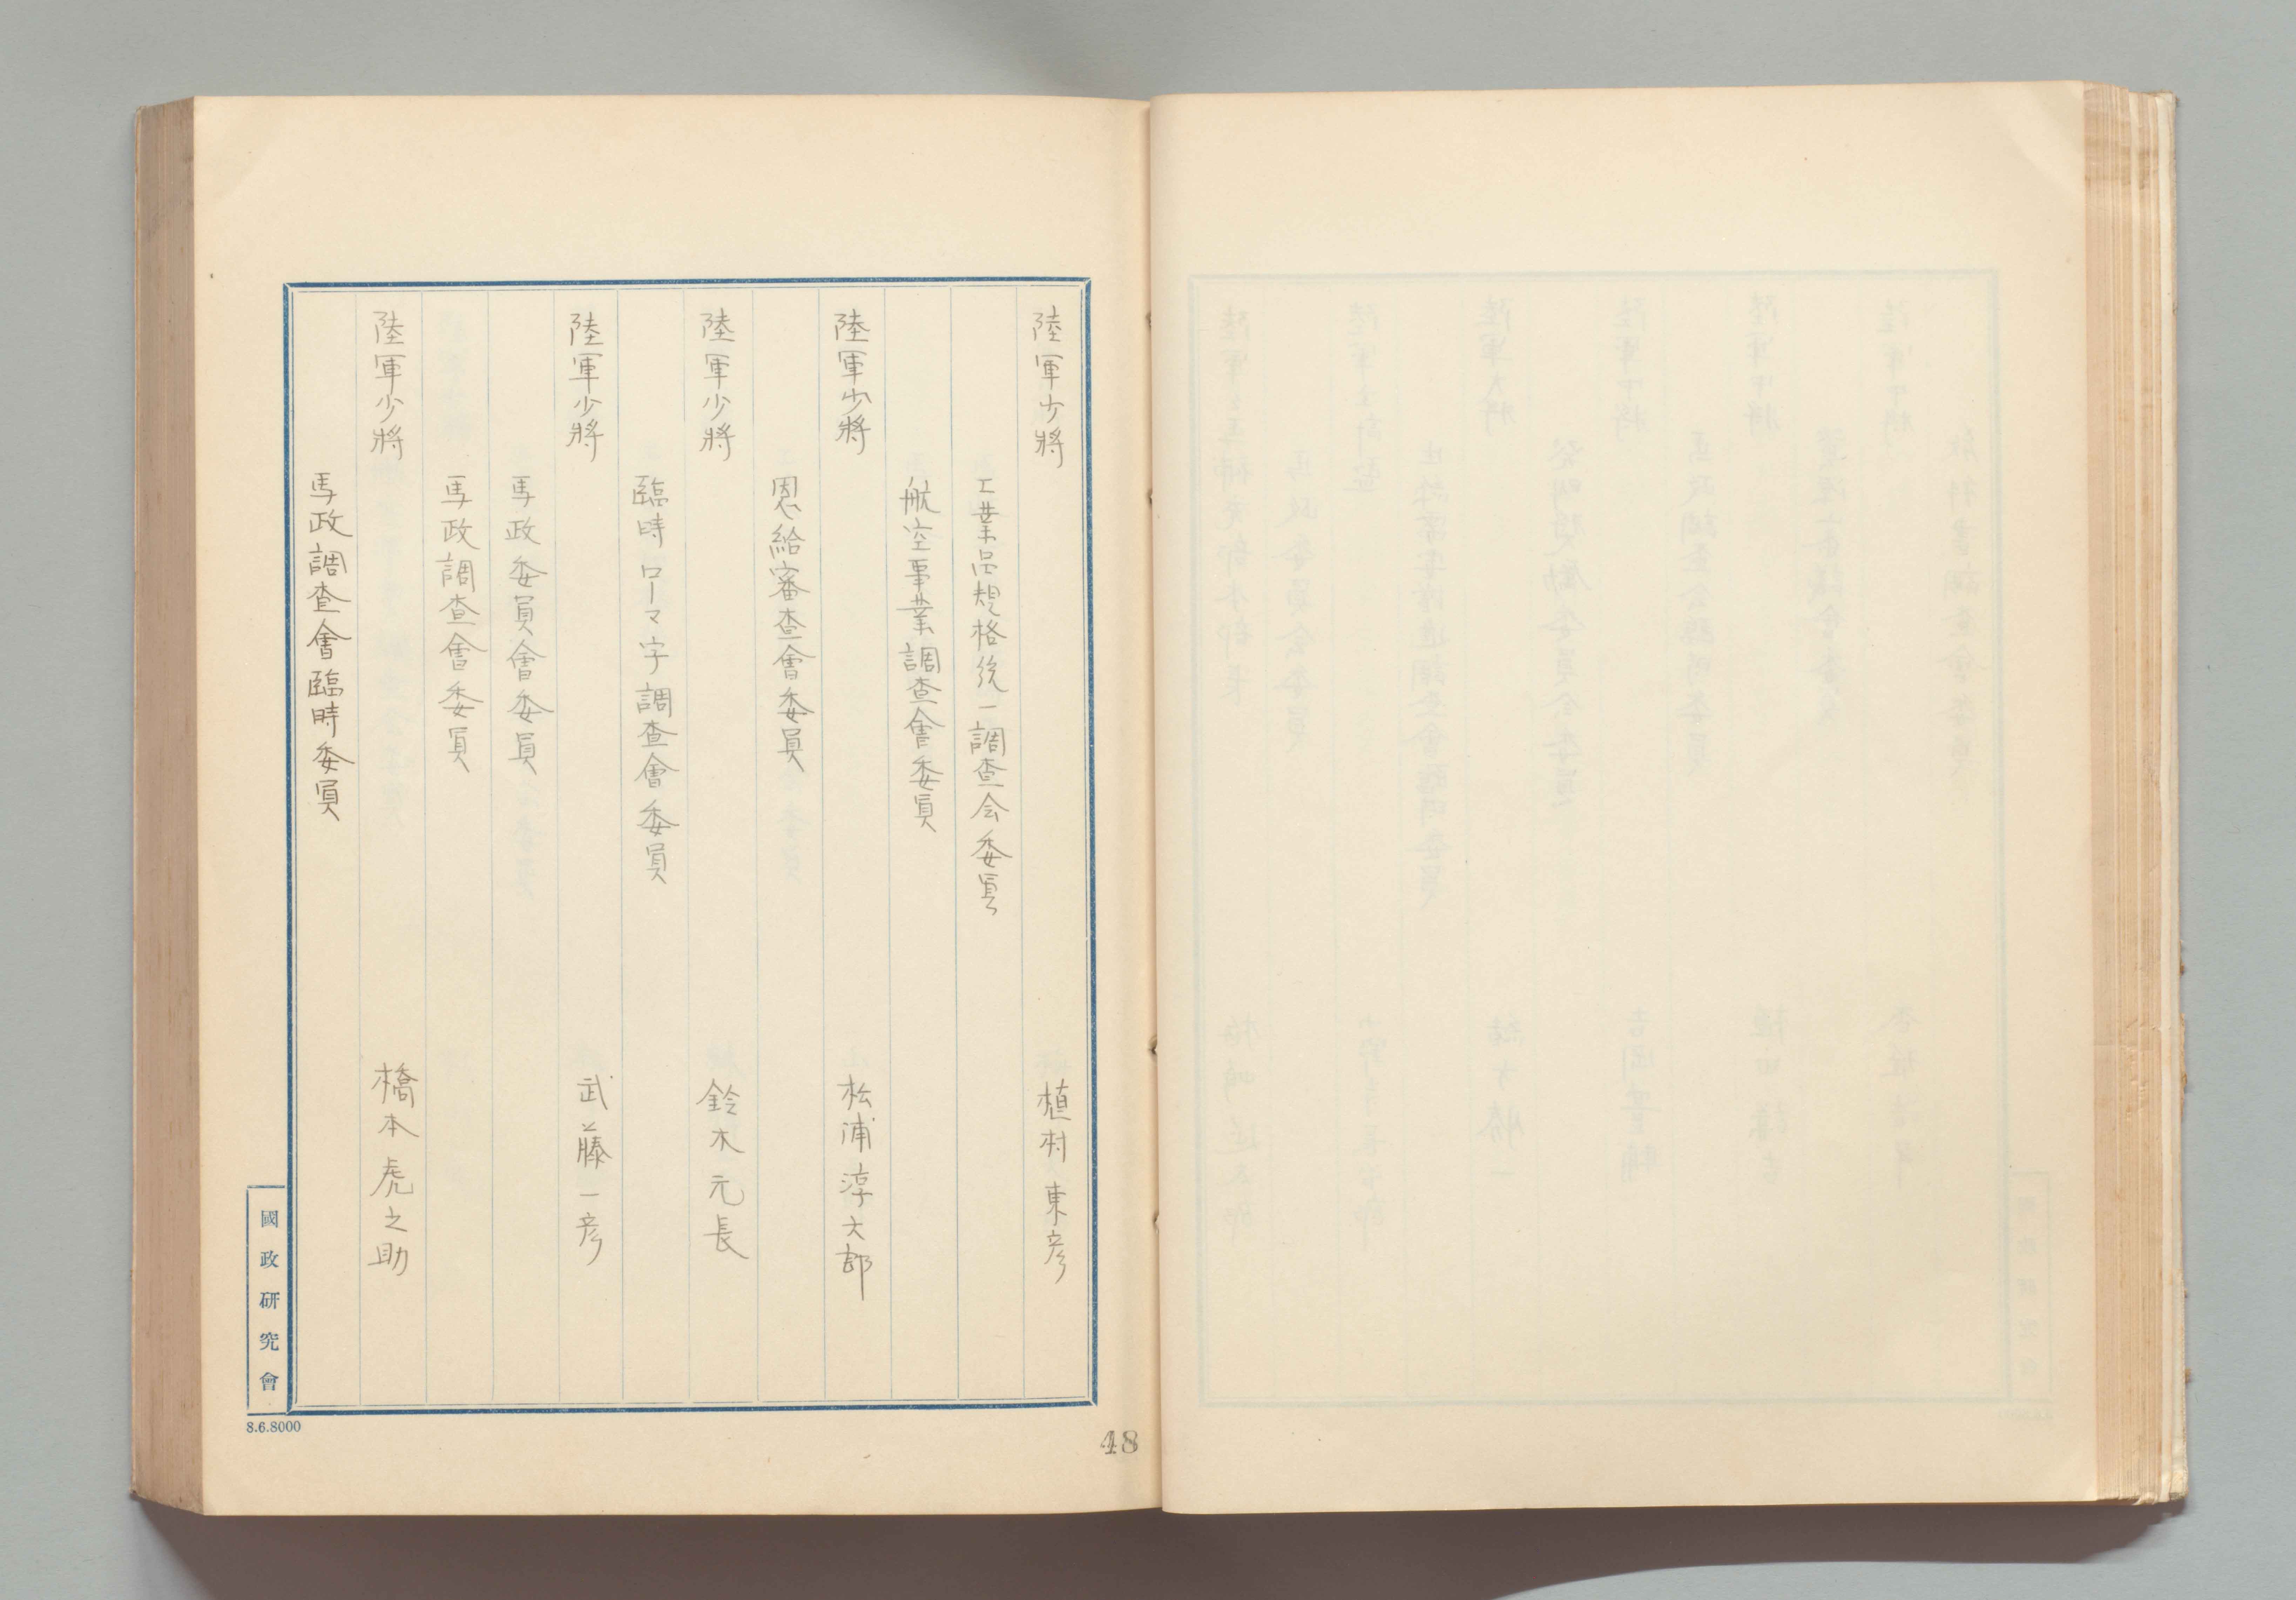 陸軍少將 植村東彦
工業品規格統一調査会委員
航空事業調査會委員
陸軍少將 松浦淳太郎
恩給審査會委員
陸軍少將 鈴木元長
臨時ローマ字調査會委員
陸軍少將 武藤一彦
馬政委員會委員
馬政調査會委員
陸軍少將 橋本虎之助
馬政調査會臨時委員
國政研究會
8.6.8000
48